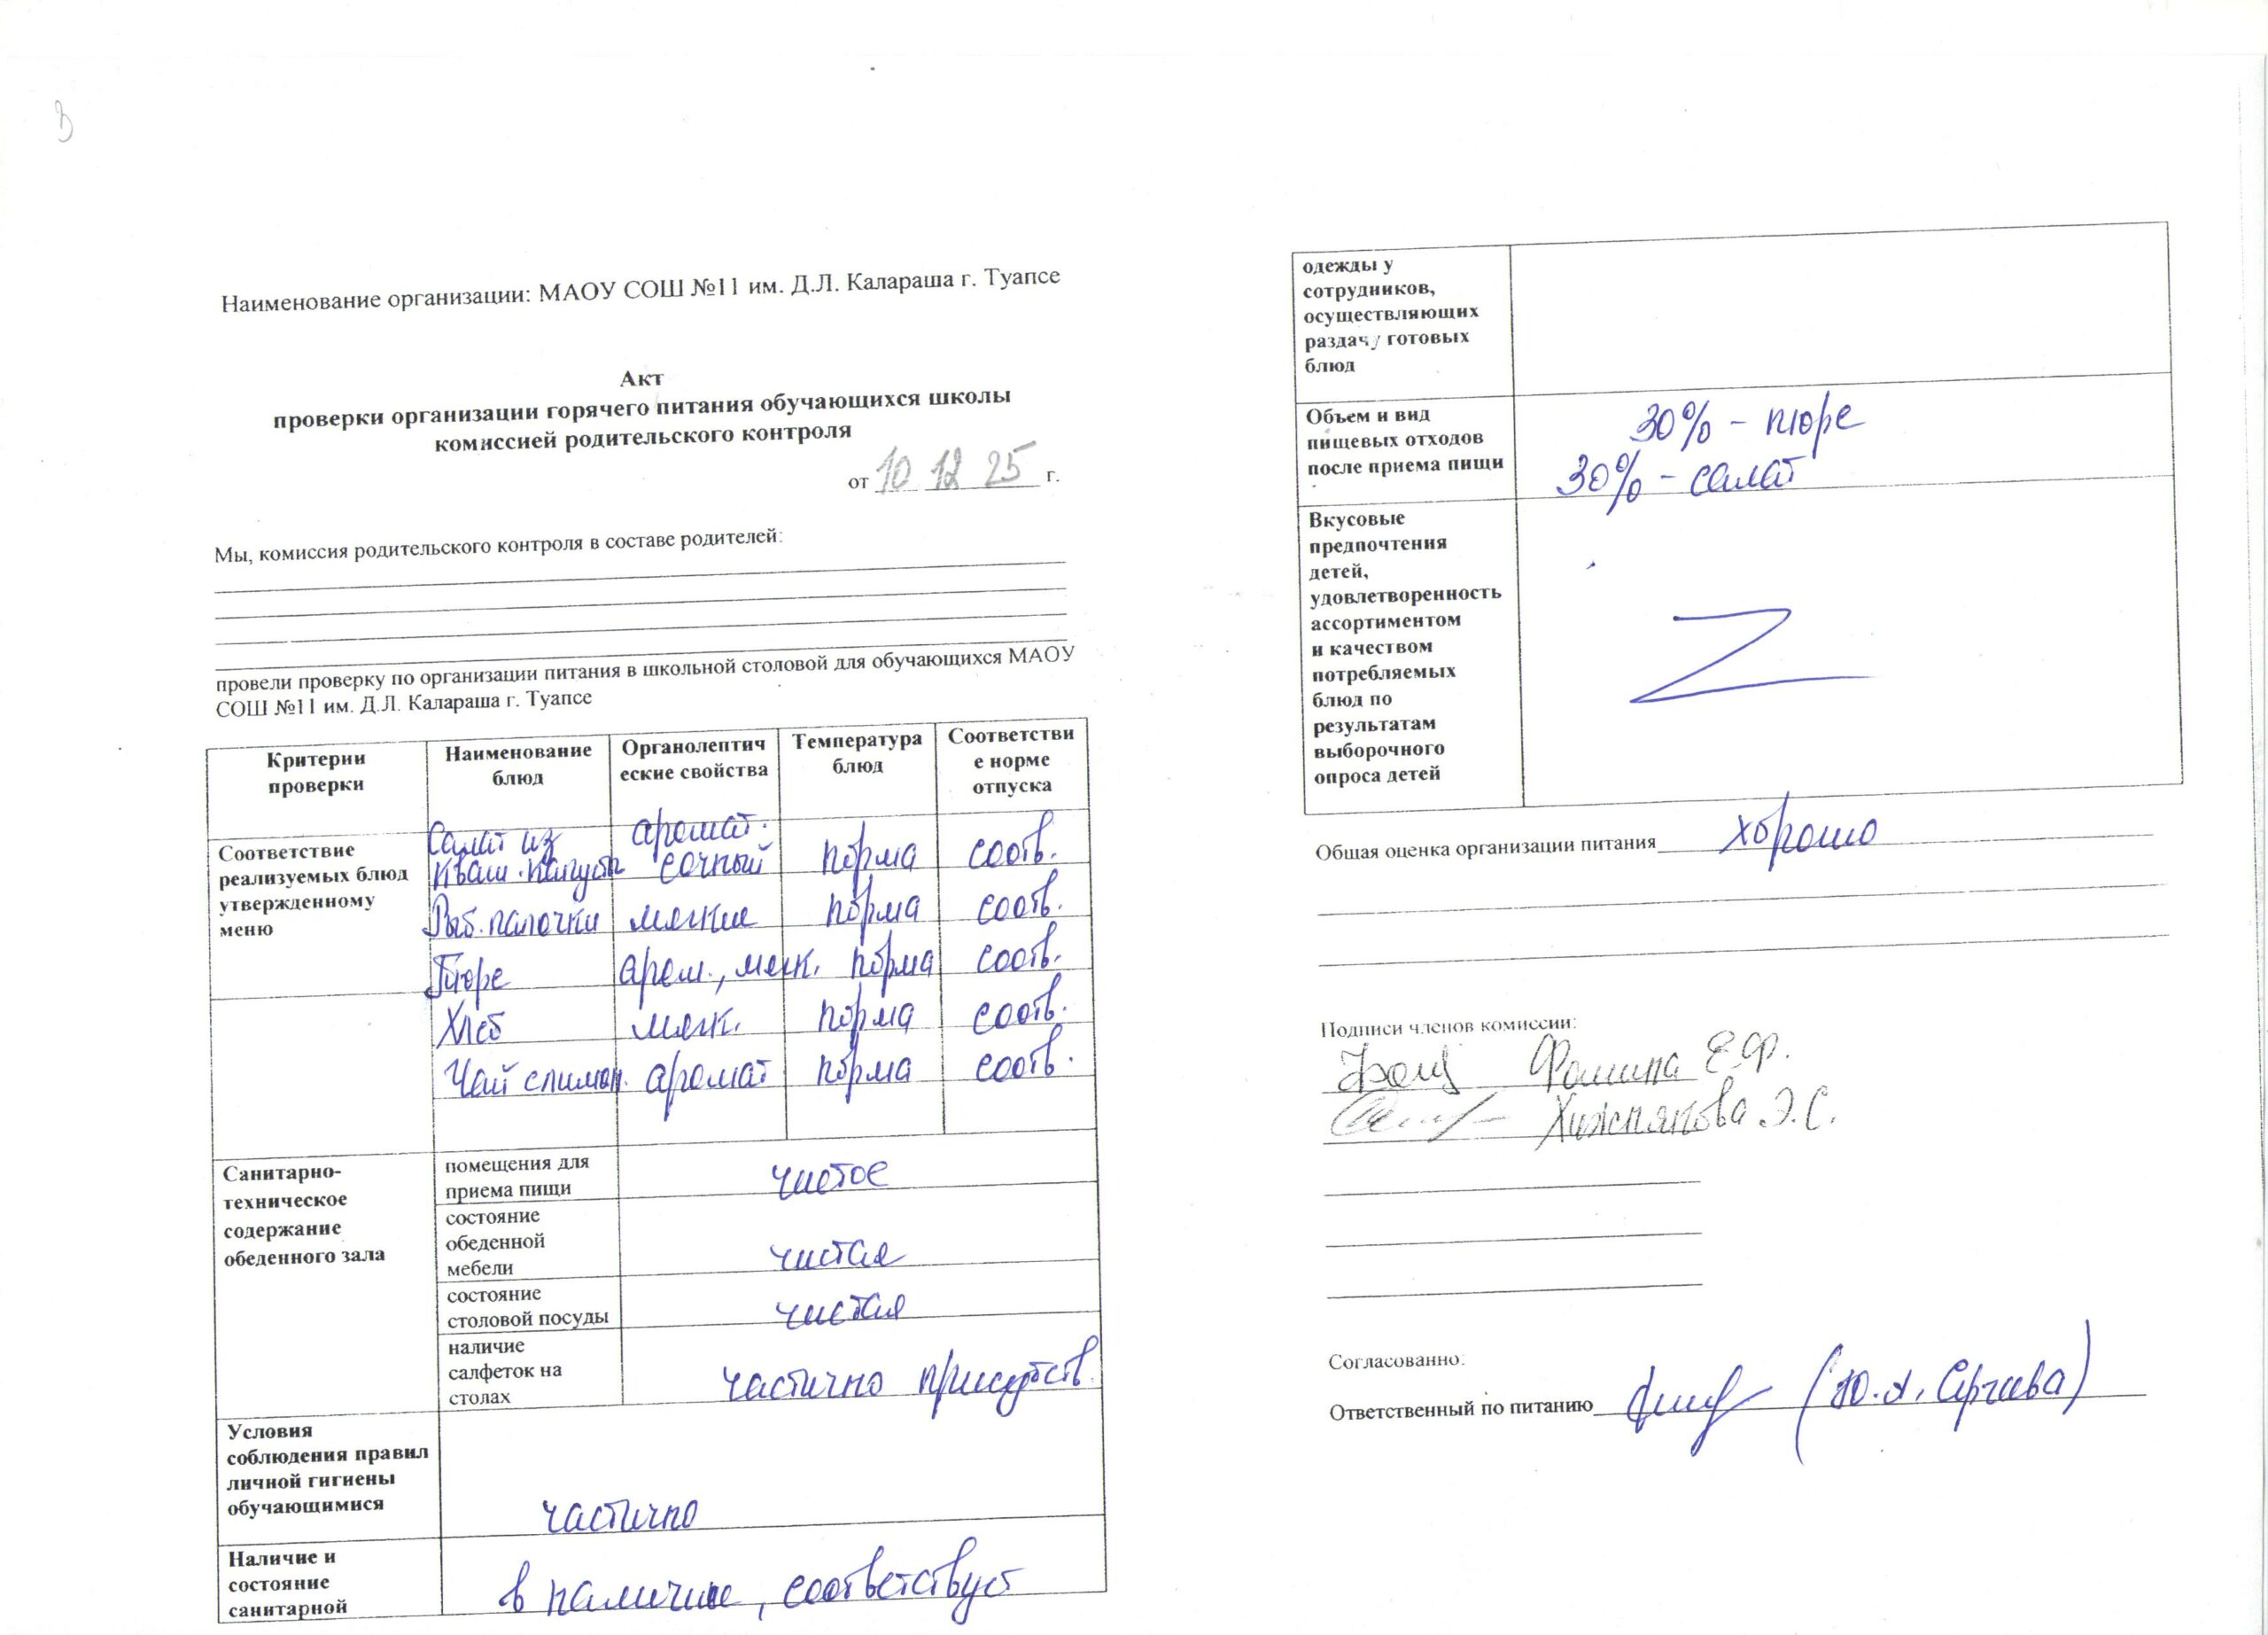 Наименование организации: МАОУ СОШ №11 им. Д.Л. Калараша г. Туапсе
Акт
проверки организации горячего питания обучающихся школы
комиссией родительского контроля
от 10 12 25 г.
Мы, комиссия родительского контроля в составе родителей:
провели проверку по организации питания в школьной столовой для обучающихся МАОУ
СОШ №11 им. Д.Л. Калараша г. Туапсе
Критерии
проверки
Наименование
блюд
Органолептич
еские свойства
Температура
блюд
Соответстви
е норме
отпуска
Соответствие
реализуемых блюд
утвержденному
меню
Салат из
кваш. капусты
аромат.
сочный
норма
соотв.
Рыб. палочки
мягкие
норма
соотв.
Пюре
аром., мягк.
норма
соотв.
Хлеб
мягк.
норма
соотв.
Чай слимон.
аромат
норма
соотв.
Санитарно-
техническое
содержание
обеденного зала
помещения для
приема пищи
чистое
состояние
обеденной
мебели
чистая
состояние
столовой посуды
чистая
наличие
салфеток на
столах
частично присутств.
Условия
соблюдения правил
личной гигиены
обучающимися
частично
Наличие и
состояние
санитарной
в наличие, соответствует
одежды у
сотрудников,
осуществляющих
раздачу готовых
блюд
Объем и вид
пищевых отходов
после приема пищи
30% - пюре
30% - салат
Вкусовые
предпочтения
детей,
удовлетворенность
ассортиментом
и качеством
потребляемых
блюд по
результатам
выборочного
опроса детей
Общая оценка организации питания хорошо
Подписи членов комиссии:
Фомина Е.Ф.
Хижнякова Э.С.
Согласованно:
Ответственный по питанию (Ю.А.